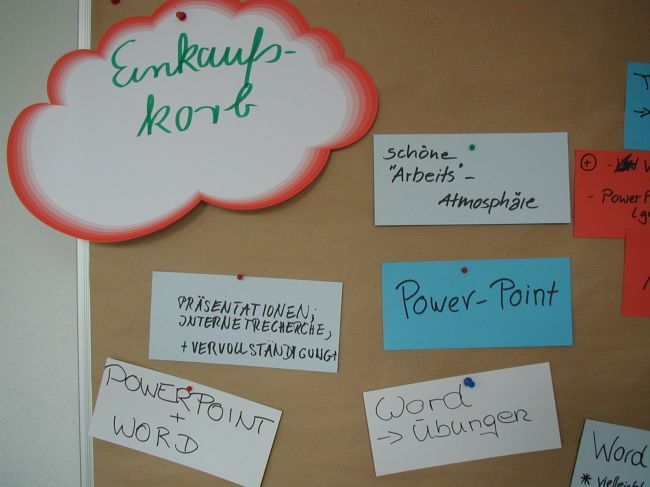 Einkaufs-
korb
schöne
"Arbeits"-
Atmosphäre
Power-Point
PRÄSENTATIONEN;
INTERNETRECHERCHE,
+VERVOLLSTÄNDIGUNG+
POWERPOINT
+
WORD
Word
-> Übungen
+
- PowerP
Word
* vielleich